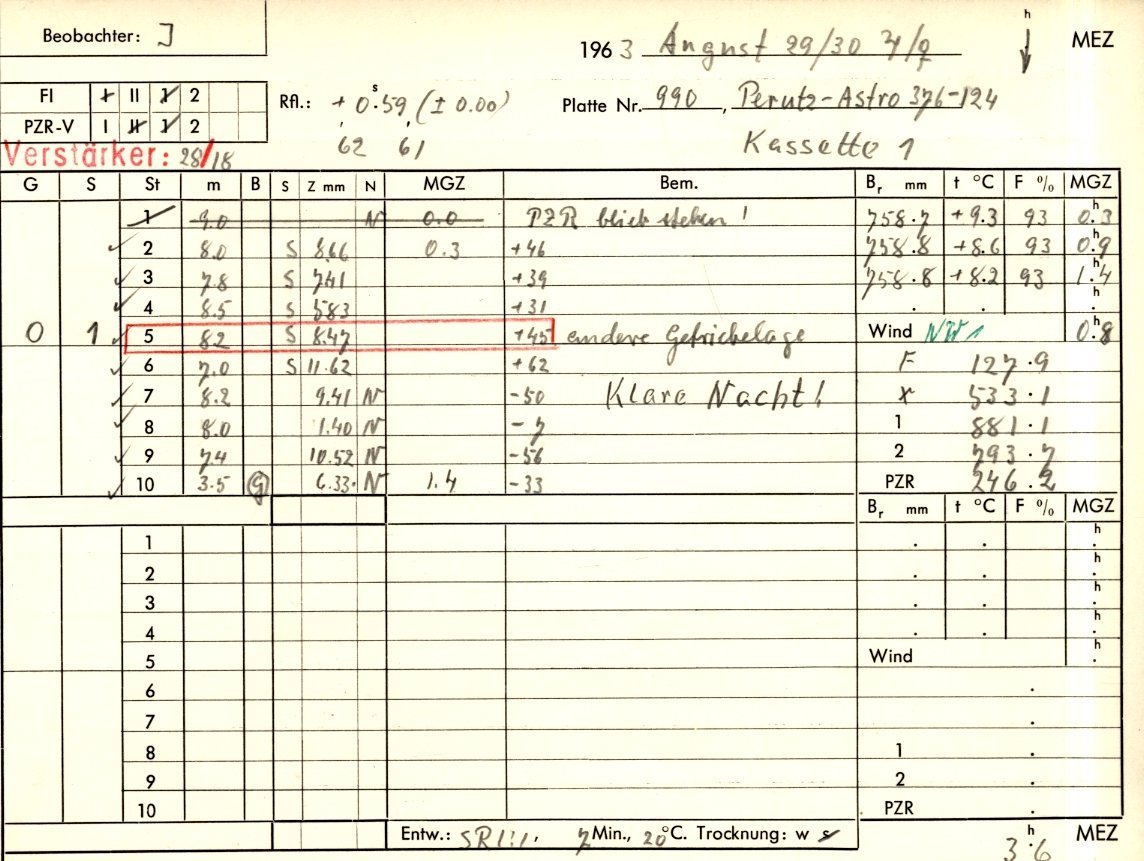 Beobachter: J
1963 August 29/30 h MEZ
FI I II 1 2
PZR-V I II 1 2
Rfl.: + 0.59 s (± 0.00)
62 61
Platte Nr. 990, Perutz-Astro 376-124
Kassette 1
Verstärker: 28/18
G S St m B S Z mm N MGZ Bem. Br mm t °C F % MGZ
1 9.0 N 0.0 PZR blieb stehen! 758.7 +9.3 93 0.3 h
2 8.0 S 8.66 0.3 +46 758.8 +8.6 93 0.9 h
3 7.8 S 7.41 +39 758.8 +8.2 93 1.4 h
4 8.5 S 5.83 +31 . . h
0 1 5 8.2 S 8.47 +45 andere Getriebelage Wind NW 1 0.8 h
6 7.0 S 11.62 +62 F 127.9
7 8.2 9.41 N -50 Klare Nacht! x 533.1
8 8.0 1.40 N -7 1 881.1
9 7.4 10.52 N -56 2 793.7
10 3.5 G 6.33 N 1.4 -33 PZR 246.2
Br mm t °C F % MGZ
1 . . h
2 . . h
3 . . h
4 . . h
5 Wind . h
6 .
7 .
8 1 .
9 2 .
10 PZR .
Entw.: SR 1:1, 7 Min., 20°C. Trocknung: w s 3.6 h MEZ